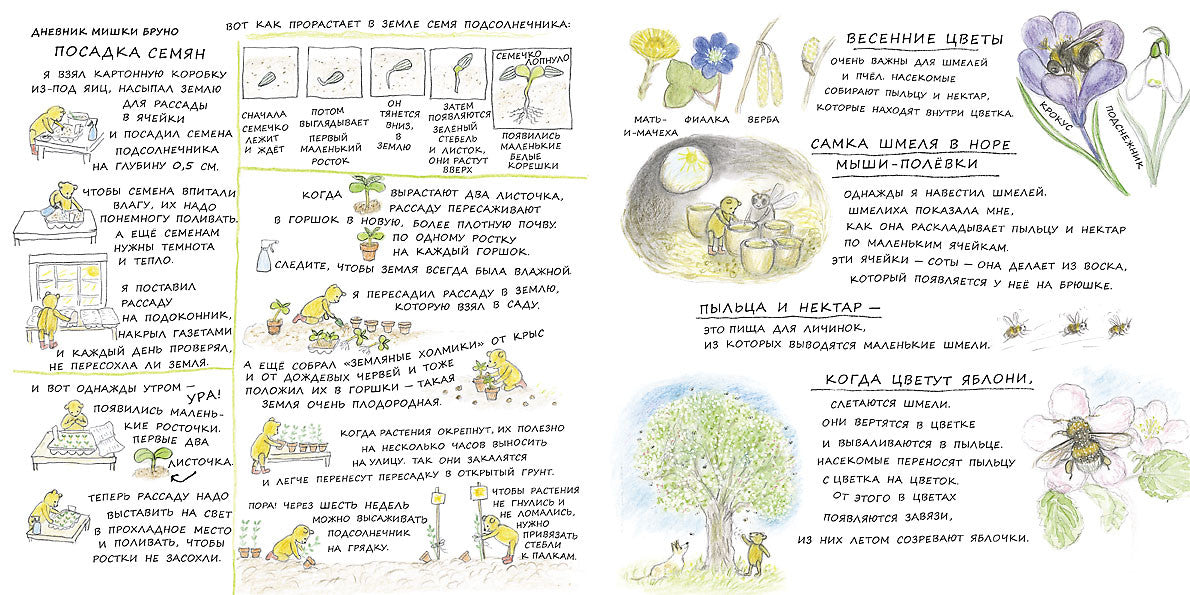 ДНЕВНИК МИШКИ БРУНО
ПОСАДКА СЕМЯН
Я ВЗЯЛ КАРТОННУЮ КОРОБКУ
ИЗ-ПОД ЯИЦ, НАСЫПАЛ ЗЕМЛЮ
ДЛЯ РАССАДЫ
В ЯЧЕЙКИ
И ПОСАДИЛ СЕМЕНА
ПОДСОЛНЕЧНИКА
НА ГЛУБИНУ 0,5 СМ.
ЧТОБЫ СЕМЕНА ВПИТАЛИ
ВЛАГУ, ИХ НАДО
ПОНЕМНОГУ ПОЛИВАТЬ.
А ЕЩЁ СЕМЕНАМ
НУЖНЫ ТЕМНОТА
И ТЕПЛО.
Я ПОСТАВИЛ
РАССАДУ
НА ПОДОКОННИК,
НАКРЫЛ ГАЗЕТАМИ
И КАЖДЫЙ ДЕНЬ ПРОВЕРЯЛ,
НЕ ПЕРЕСОХЛА ЛИ ЗЕМЛЯ.
И ВОТ ОДНАЖДЫ УТРОМ –
УРА!
ПОЯВИЛИСЬ МАЛЕНЬ-
КИЕ РОСТОЧКИ.
ПЕРВЫЕ ДВА
ЛИСТОЧКА.
ТЕПЕРЬ РАССАДУ НАДО
ВЫСТАВИТЬ НА СВЕТ
В ПРОХЛАДНОЕ МЕСТО
И ПОЛИВАТЬ, ЧТОБЫ
РОСТКИ НЕ ЗАСОХЛИ.
ВОТ КАК ПРОРАСТАЕТ В ЗЕМЛЕ СЕМЯ ПОДСОЛНЕЧНИКА:
СНАЧАЛА
СЕМЕЧКО
ЛЕЖИТ
И ЖДЁТ
ПОТОМ
ВЫГЛЯДЫВАЕТ
ПЕРВЫЙ
МАЛЕНЬКИЙ
РОСТОК
ОН
ТЯНЕТСЯ
ВНИЗ,
В
ЗЕМЛЮ
ЗАТЕМ
ПОЯВЛЯЮТСЯ
ЗЕЛЕНЫЙ
СТЕБЕЛЬ
И ЛИСТОК,
ОНИ РАСТУТ
ВВЕРХ
СЕМЕЧКО
ЛОПНУЛО
ПОЯВИЛИСЬ
МАЛЕНЬКИЕ
БЕЛЫЕ
КОРЕШКИ
КОГДА ВЫРАСТАЮТ ДВА ЛИСТОЧКА,
РАССАДУ ПЕРЕСАЖИВАЮТ
В ГОРШОК В НОВУЮ, БОЛЕЕ ПЛОТНУЮ ПОЧВУ.
ПО ОДНОМУ РОСТКУ
НА КАЖДЫЙ ГОРШОК.
СЛЕДИТЕ, ЧТОБЫ ЗЕМЛЯ ВСЕГДА БЫЛА ВЛАЖНОЙ.
Я ПЕРЕСАДИЛ РАССАДУ В ЗЕМЛЮ,
КОТОРУЮ ВЗЯЛ В САДУ.
А ЕЩЁ СОБРАЛ «ЗЕМЛЯНЫЕ ХОЛМИКИ» ОТ КРЫС
И ОТ ДОЖДЕВЫХ ЧЕРВЕЙ И ТОЖЕ
ПОЛОЖИЛ ИХ В ГОРШКИ – ТАКАЯ
ЗЕМЛЯ ОЧЕНЬ ПЛОДОРОДНАЯ.
КОГДА РАСТЕНИЯ ОКРЕПНУТ, ИХ ПОЛЕЗНО
НА НЕСКОЛЬКО ЧАСОВ ВЫНОСИТЬ
НА УЛИЦУ. ТАК ОНИ ЗАКАЛЯТСЯ
И ЛЕГЧЕ ПЕРЕНЕСУТ ПЕРЕСАДКУ В ОТКРЫТЫЙ ГРУНТ.
ПОРА! ЧЕРЕЗ ШЕСТЬ НЕДЕЛЬ
МОЖНО ВЫСАЖИВАТЬ
ПОДСОЛНЕЧНИК
НА ГРЯДКУ.
ЧТОБЫ РАСТЕНИЯ
НЕ ГНУЛИСЬ И
НЕ ЛОМАЛИСЬ,
НУЖНО
ПРИВЯЗАТЬ
СТЕБЛИ
К ПАЛКАМ.
МАТЬ-
И-МАЧЕХА
ФИАЛКА
ВЕРБА
ВЕСЕННИЕ ЦВЕТЫ
ОЧЕНЬ ВАЖНЫ ДЛЯ ШМЕЛЕЙ
И ПЧЁЛ. НАСЕКОМЫЕ
СОБИРАЮТ ПЫЛЬЦУ И НЕКТАР,
КОТОРЫЕ НАХОДЯТ ВНУТРИ ЦВЕТКА.
КРОКУС
ПОДСНЕЖНИК
САМКА ШМЕЛЯ В НОРЕ
МЫШИ-ПОЛЁВКИ
ОДНАЖДЫ Я НАВЕСТИЛ ШМЕЛЕЙ.
ШМЕЛИХА ПОКАЗАЛА МНЕ,
КАК ОНА РАСКЛАДЫВАЕТ ПЫЛЬЦУ И НЕКТАР
ПО МАЛЕНЬКИМ ЯЧЕЙКАМ.
ЭТИ ЯЧЕЙКИ – СОТЫ – ОНА ДЕЛАЕТ ИЗ ВОСКА,
КОТОРЫЙ ПОЯВЛЯЕТСЯ У НЕЁ НА БРЮШКЕ.
ПЫЛЬЦА И НЕКТАР –
ЭТО ПИЩА ДЛЯ ЛИЧИНОК,
ИЗ КОТОРЫХ ВЫВОДЯТСЯ МАЛЕНЬКИЕ ШМЕЛИ.
КОГДА ЦВЕТУТ ЯБЛОНИ,
СЛЕТАЮТСЯ ШМЕЛИ.
ОНИ ВЕРТЯТСЯ В ЦВЕТКЕ
И ВЫВАЛИВАЮТСЯ В ПЫЛЬЦЕ.
НАСЕКОМЫЕ ПЕРЕНОСЯТ ПЫЛЬЦУ
С ЦВЕТКА НА ЦВЕТОК.
ОТ ЭТОГО В ЦВЕТАХ
ПОЯВЛЯЮТСЯ ЗАВЯЗИ,
ИЗ НИХ ЛЕТОМ СОЗРЕВАЮТ ЯБЛОЧКИ.